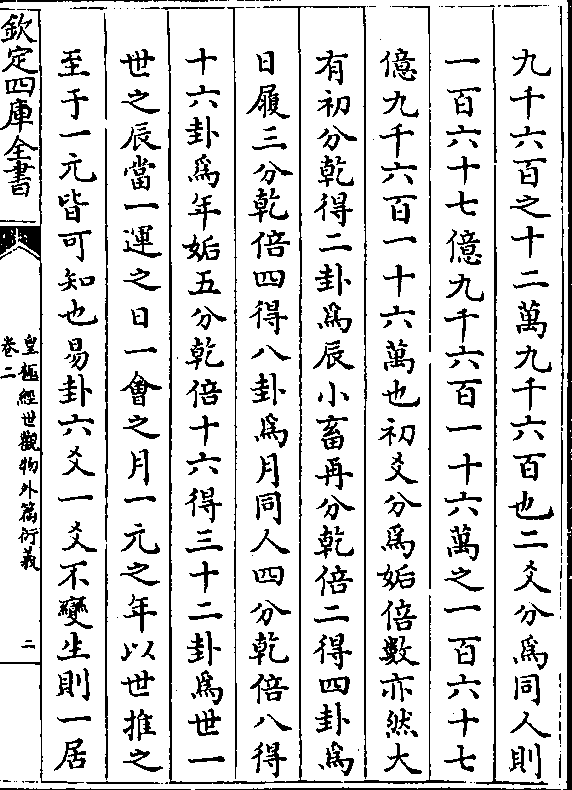 九千六百之十二萬九千六百也二爻分爲同人則
一百六十七億九千六百一十六萬之一百六十七
億九千六百一十六萬也初爻分爲姤倍數亦然大
有初分乾得二卦爲辰小畜再分乾倍二得四卦爲
日履三分乾倍四得八卦爲月同人四分乾倍八得
十六卦爲年姤五分乾倍十六得三十二卦爲世一
世之辰當一運之日一會之月一元之年以世推之
至于一元皆可知也易卦六爻一爻不變生則一居
欽定四庫全書
皇極經世觀物外篇衍義
卷二
二